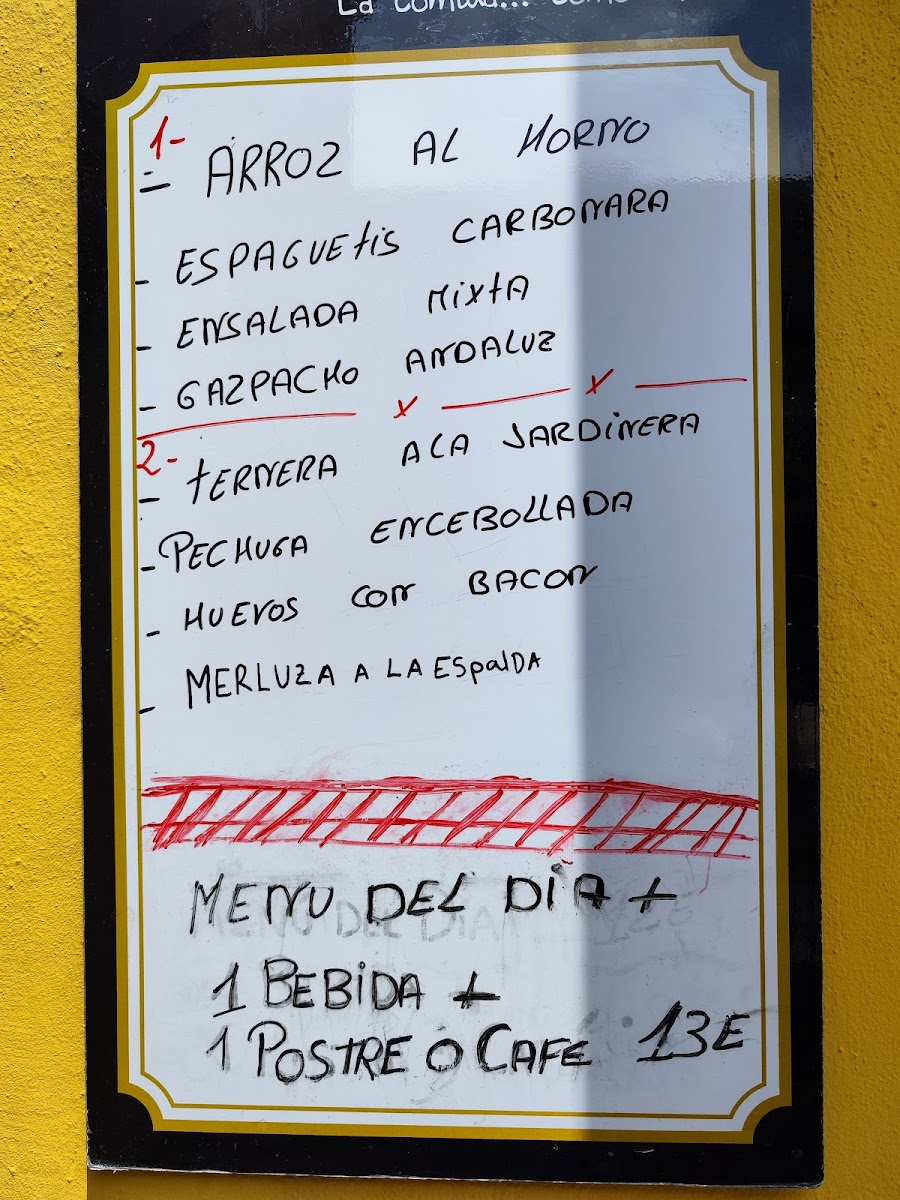 La comida...
1-
- ARROZ AL HORNO
- ESPAGUETIS CARBONARA
- ENSALADA MIXTA
- GAZPACHO ANDALUZ
x x
2-
- TERNERA A LA JARDINERA
- PECHUGA ENCEBOLLADA
- HUEVOS CON BACON
- MERLUZA A LA ESPALDA
MENU DEL DÍA +
1 BEBIDA +
1 POSTRE O CAFÉ 13E